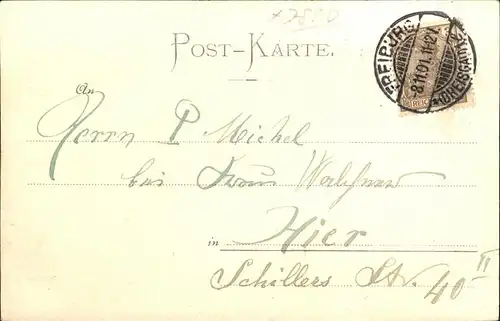 *7890
POST-KARTE.
FREIBURG
-8.11.01. 11-12
*(BREISGAU)*
An
Herrn P Michel
bei Frau
in Hier
Schillers Str. 40 II